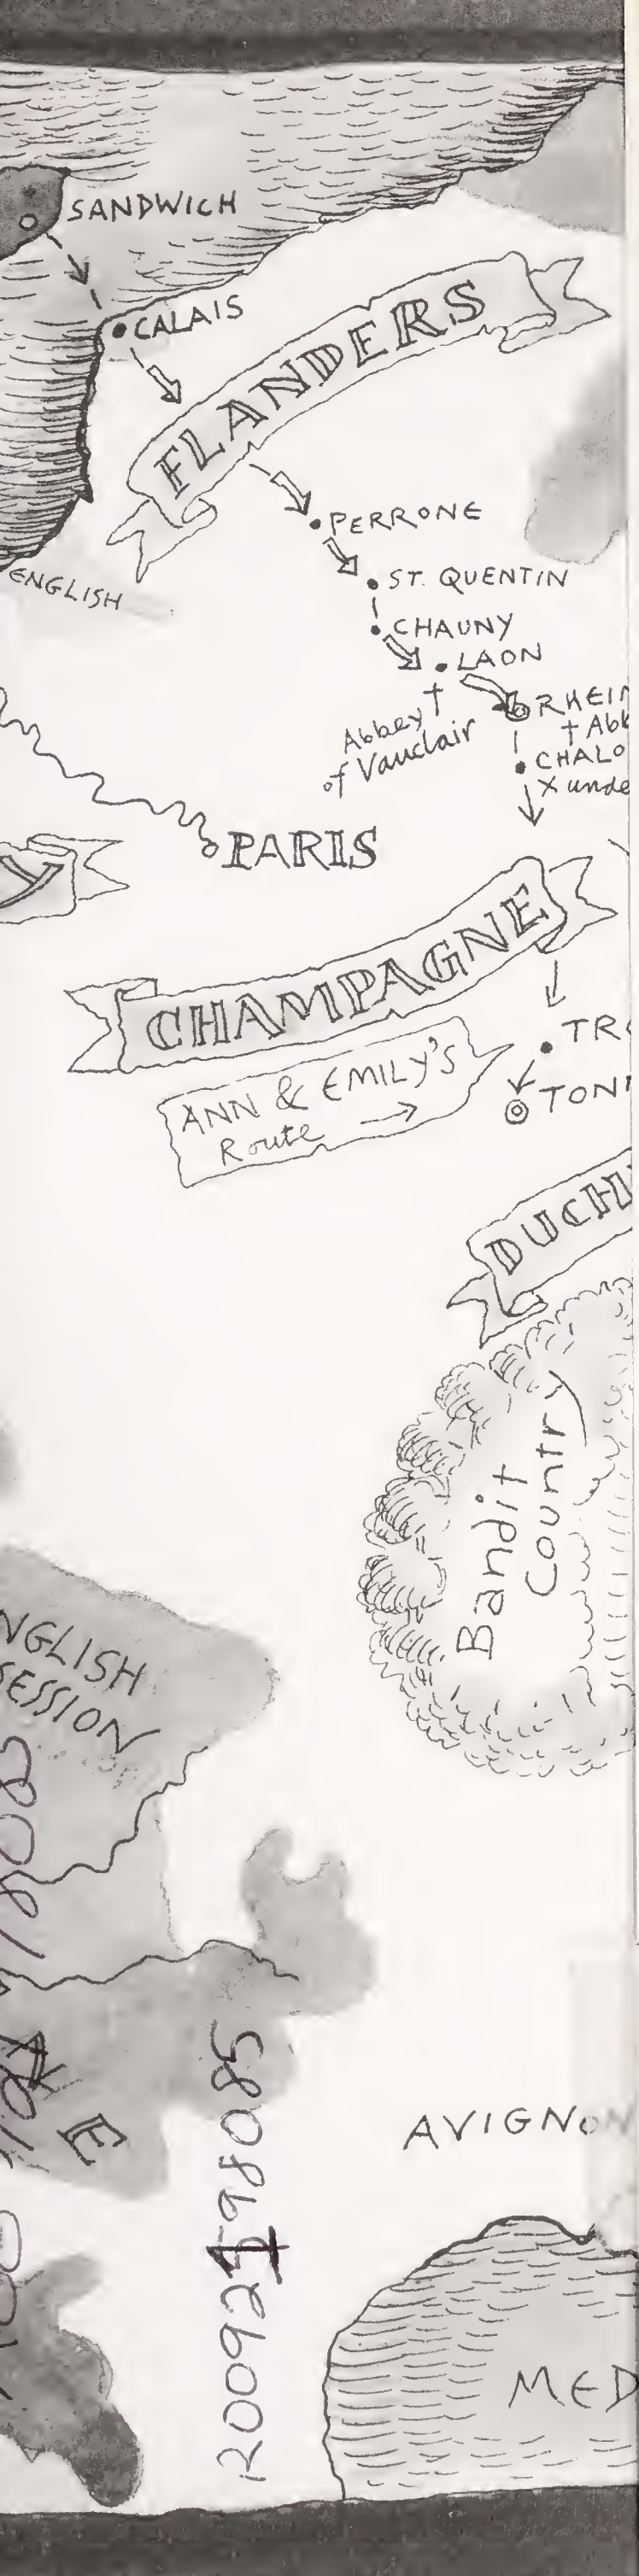 SANDWICH
CALAIS
FLANDERS
PERRONE
ST. QUENTIN
ENGLISH
CHAUNY
LAON
Abbey
of Vauclair
RHEI
Abb
CHALO
X unde
PARIS
Y
CHAMPAGNE
TRO
ANN & EMILY'S
Route
TON
DUCH
Bandit
Country
NGLISH
SESSION
NE
AVIGNON
MED